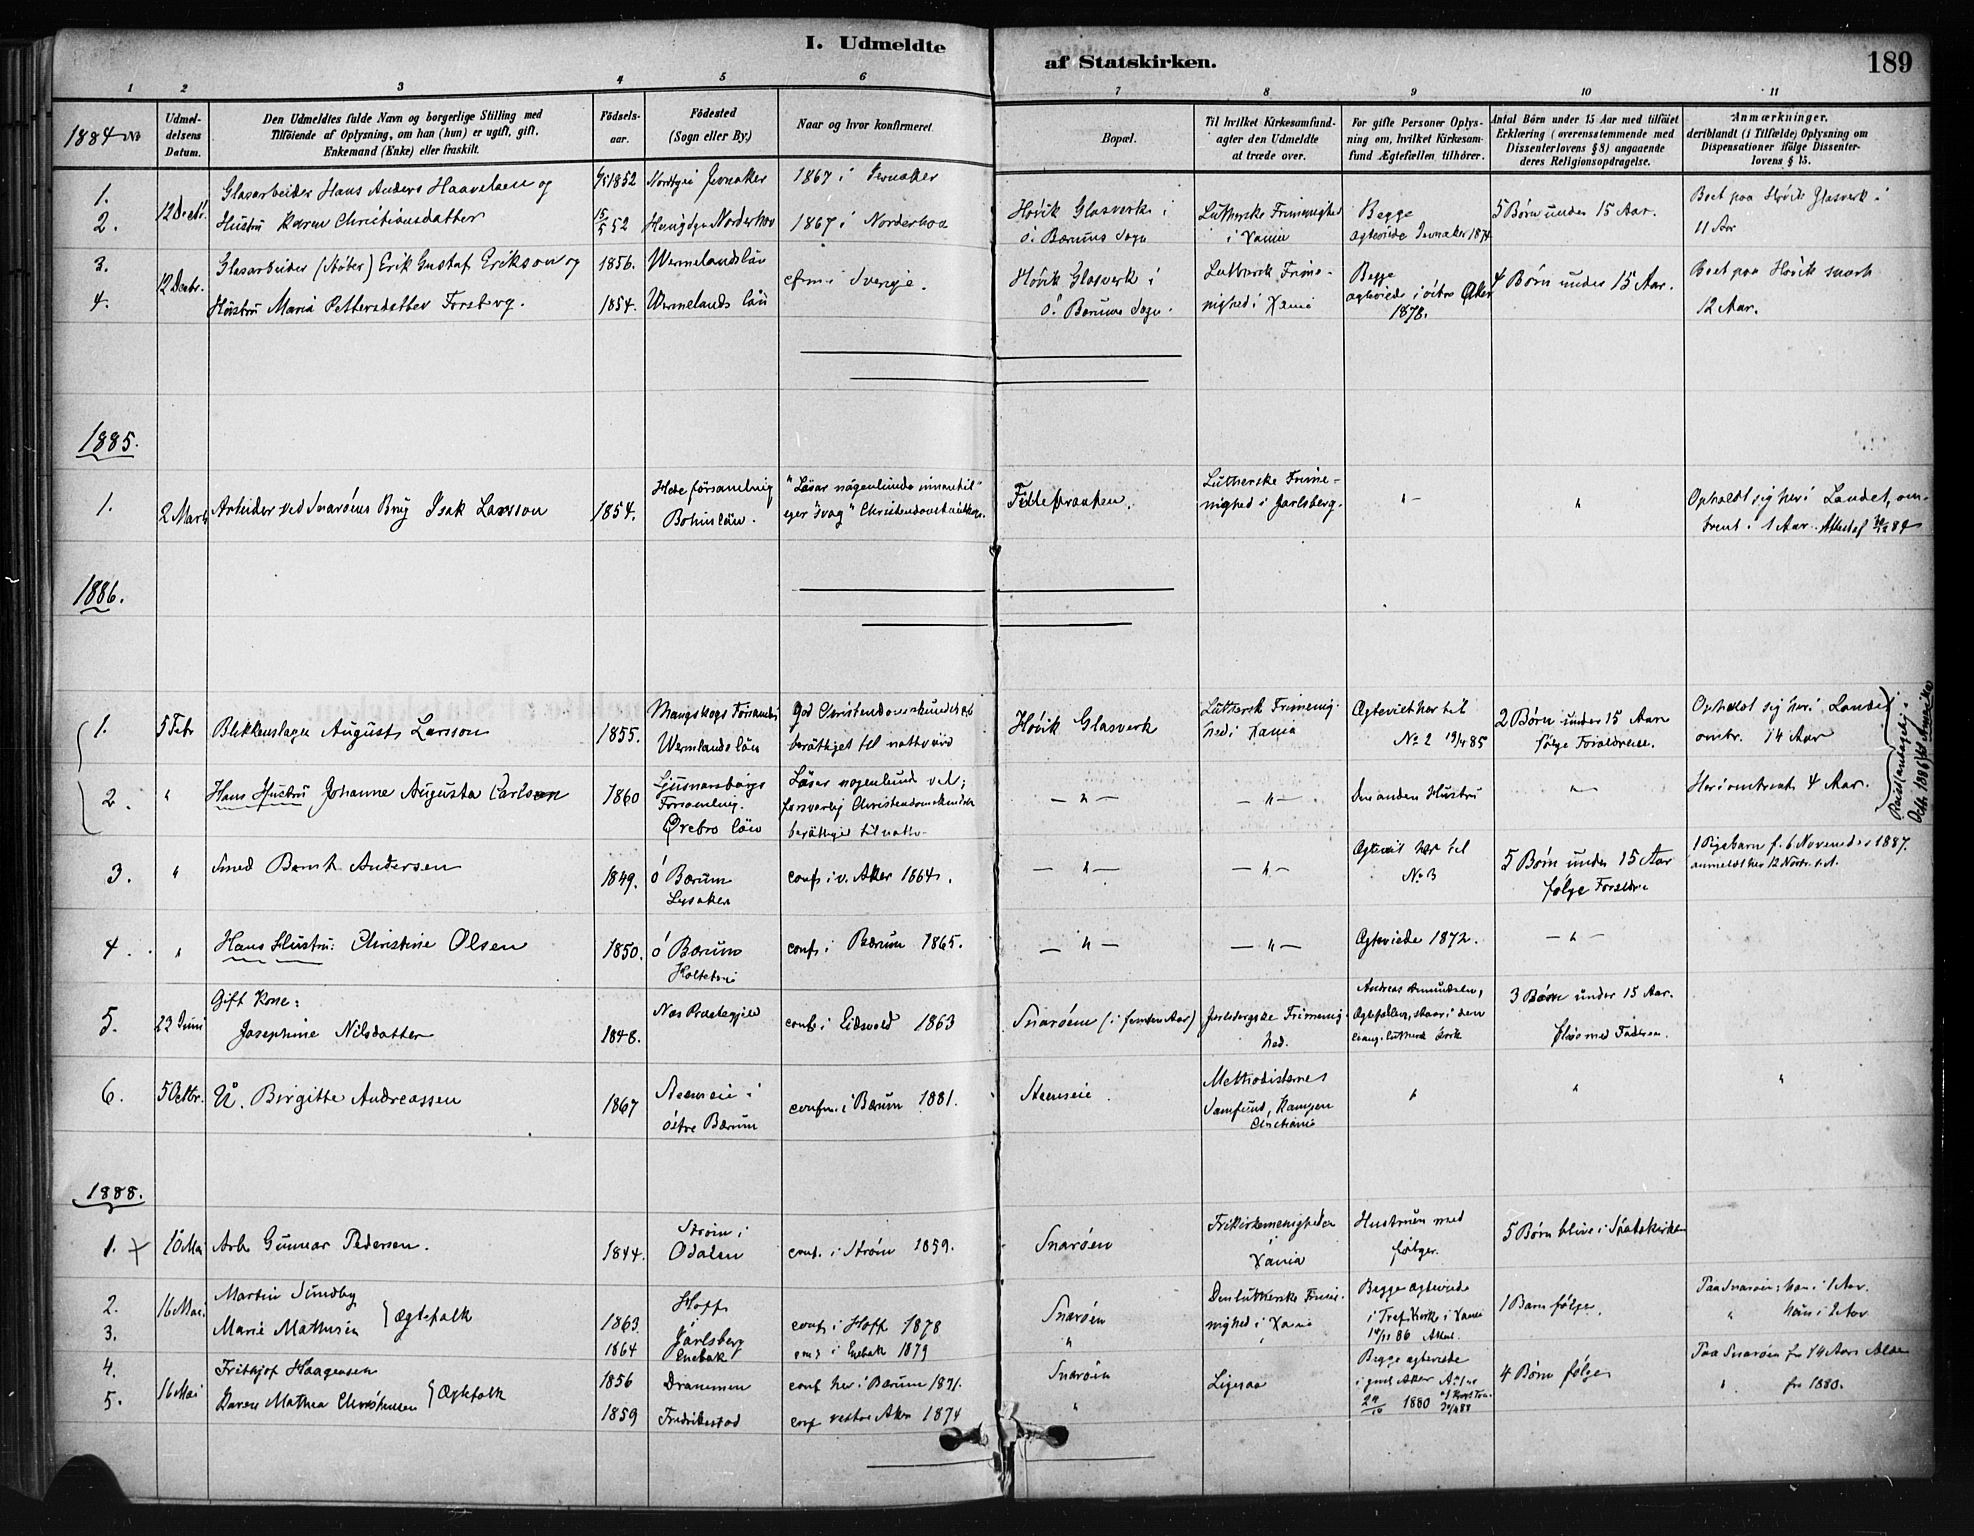 I. Udmeldte
af Statskirken.
189
1 2 3 4 5 6 7 8 9 10 11
1884 No
Udmel-
delsens
Datum.
Den Udmeldtes fulde Navn og borgerlige Stilling med
Tilföiende af Oplysning, om han (hun) er ugift, gift,
Enkemand (Enke) eller fraskilt.
Födsels-
aar.
Födested
(Sogn eller By.)
Naar og hvor konfirmeret.
Bopæl.
Til hvilket Kirkesamfund-
agter den Udmeldte
at træde over.
For gifte Personer Oplys-
ning om, hvilket Kirkesam-
fund Ægtefællen tilhörer.
Antal Börn under 15 Aar med tilföiet
Erklæring (overensstemmende med
Dissenterlovens § 8) angaaende
deres Religionsopdragelse.
Anmærkninger,
deriblandt (i Tilfælde) Oplysning om
Dispensationer ifølge Dissenter-
lovens § 15.
1.
2.
12 Decbr.
Glasarbeider Hans Anders Haavelsen og
Hustru Karen Christiansdatter
1852
15/5 52
Jevnaker
Norderhov
1867 i Jevnaker
1867 i Norderhov
Hövik Glasverk i
ö. Bærums Sogn
Lutherske Frimenighed
i Xania
Begge
ægteviede Jevnaker 1874
5 Börn under 15 Aar.
Boet paa Hövik Glasverk i
11 Aar
3.
4.
12 Decbr.
Glasarbeider (Støber) Erik Gustaf Erikson og
Hustru Maria Pettersdatter Forsberg.
1856.
1854.
Wermelandslän
Wermelands län
cfm. i Sverige.
Hövik Glasverk i
ö. Bærums Sogn.
Luthersk Frime-
nighed i Xania
Begge
ægteviede i östre Aker
1878.
4 Börn under 15 Aar.
Boet paa Hövik snart
12 Aar.
1885.
1.
2 Marts
Arbeider ved Snaröens Brug Isak Larsson
1854.
Hede församling
Bohuslän.
"Läser någenlunda innantil"
eger "svag" Christendomskundskap.
Lutherske Frime-
nighed i Jarlsberg.
"
"
Opholdt sig her i Landet, om-
trent i 1 Aar. Attest af 84
1886.
1.
5 Febr
Blikkenslager August Larsson
1855.
Mangskogs Församl.
Wermlands län
God Christendomskundskab
berättiget til nattvard
Hövik Glasverk
Luthersk Frimenig-
hed i Xania
Ægteviet her til
No 2 19/4 85
2 Börn under 15 Aar
følge Forældrene.
Opholdt sig her i Landet
omtr. 14 Aar
2.
"
Hans Hustru Johanne Augusta Carlson
1860
Ljusnarsbergs
Forsamling.
Örebro län
Läser nogenlunda vel;
forsvarlig Christendomskundskab
berättiget til nattv.
— " —
— " —
Den anden Hustru
"
Her i omtrent 4 Aar.
Reist i
Octb. 1886 til Amerika
3.
"
Smed Bernh. Andersen
1849.
ö Bærum
Lysaker
conf. i v. Aker 1864.
— " —
— " —
Ægteviet her til
No 3
5 Börn under 15 Aar
følge Forældrene
1 Pigebarn f. 6 November 1887.
anmeldt her 12 Novbr. s.A.
4.
"
Hans Hustru: Christine Olsen
1850.
ö Bærum
conf. i Bærum 1865.
— " —
— " —
Ægteviede 1872.
— " —
5.
23 Juni
Gift Kone:
Josephine Nilsdatter
1848.
Næs Præstegjeld
conf. i Eidsvold 1863
Snaröen (i femten Aar)
Jarlsbergske Frimenig-
hed.
Andreas Amundsen,
Ægtefællen, staar i den
evang. luthersk Kirke
3 Börn under 15 Aar.
med Faderen.
6.
5 Octbr.
U. Birgitte Andreassen
1867
Steenseie i
östre Bærum
confm. i Bærum 1881.
Steenseie
Methodisternes
Samfund, Kampen
Christiania
"
"
"
1888.
1.
10 Mai
Arb. Gunnar Pedersen.
1844.
Ström i
Odalen
conf. i Ström 1859.
Snaröen
Frikirkemenigheden
Xania
Hustruen med
følger.
5 Börn blive i Statskirken
2.
3.
16 Mai
Martin Sundby
Marie Mathisen
Ægtefolk
1863.
1864
Hoff
Jarlsberg
Enebak
conf. i Hoff 1878
conf. i Enebak 1879
Snaröen
"
Den lutherske Frime-
nighed i Xania
Begge ægteviede
i Tref. Kirke i Xania
14/11 86 Attest.
1 Barn følger.
Paa Snaröen: han i 1 Aar.
" hun i 2 Aar
4.
5.
16 Mai
Frithjof Haagensen
Karen Mathea Christensen
Ægtefolk
1856
1859
Drammen
Fredrikstad
conf. her i Bærum 1871.
conf. vestre Aker 1874
Snaröen
"
Ligesaa
Begge ægteviede
i Aker Attest
24/10 1880
4 Börn følger
Paa Snaröen fra 14 Aars Alder
" fra 1880.